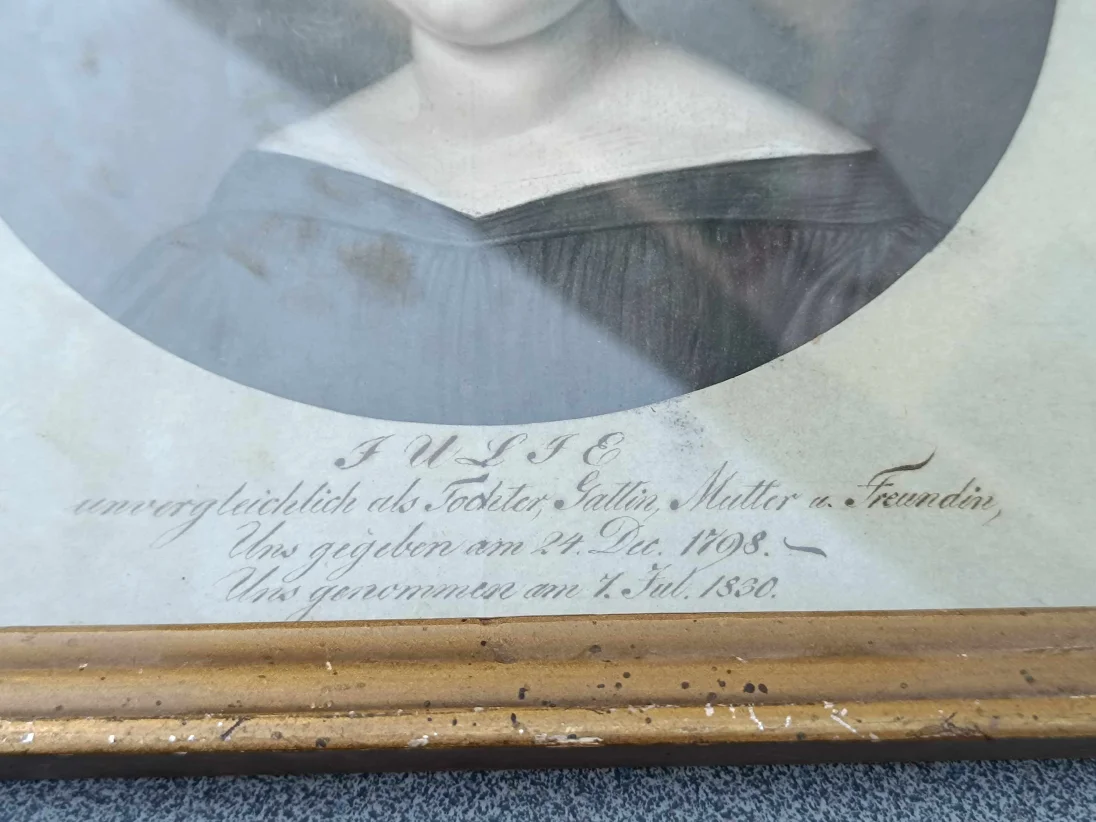 JULIE
unvergleichlich als Tochter, Gattin, Mutter u. Freundin,
Uns gegeben am 24. Dec. 1798. –
Uns genommen am 7. Jul. 1830.